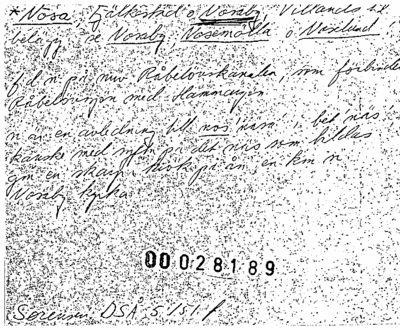 *Nosa, Fjälkestad o. Nosaby Villands hd.
belagt i Nosaby, Nosamölla o Naslund.
f.d. n. på nuv Råbelövskanalen, som förbinder
Råbelövssjön med Hammarsjön
n av en avledning till nos 'näsa', i bet 'näs'
kanske med syfte på det näs som bildas
gm en skarp krök på ån, en km n
Nosaby kyrka
00028189
Sørensen, DSÅ 5:151 f